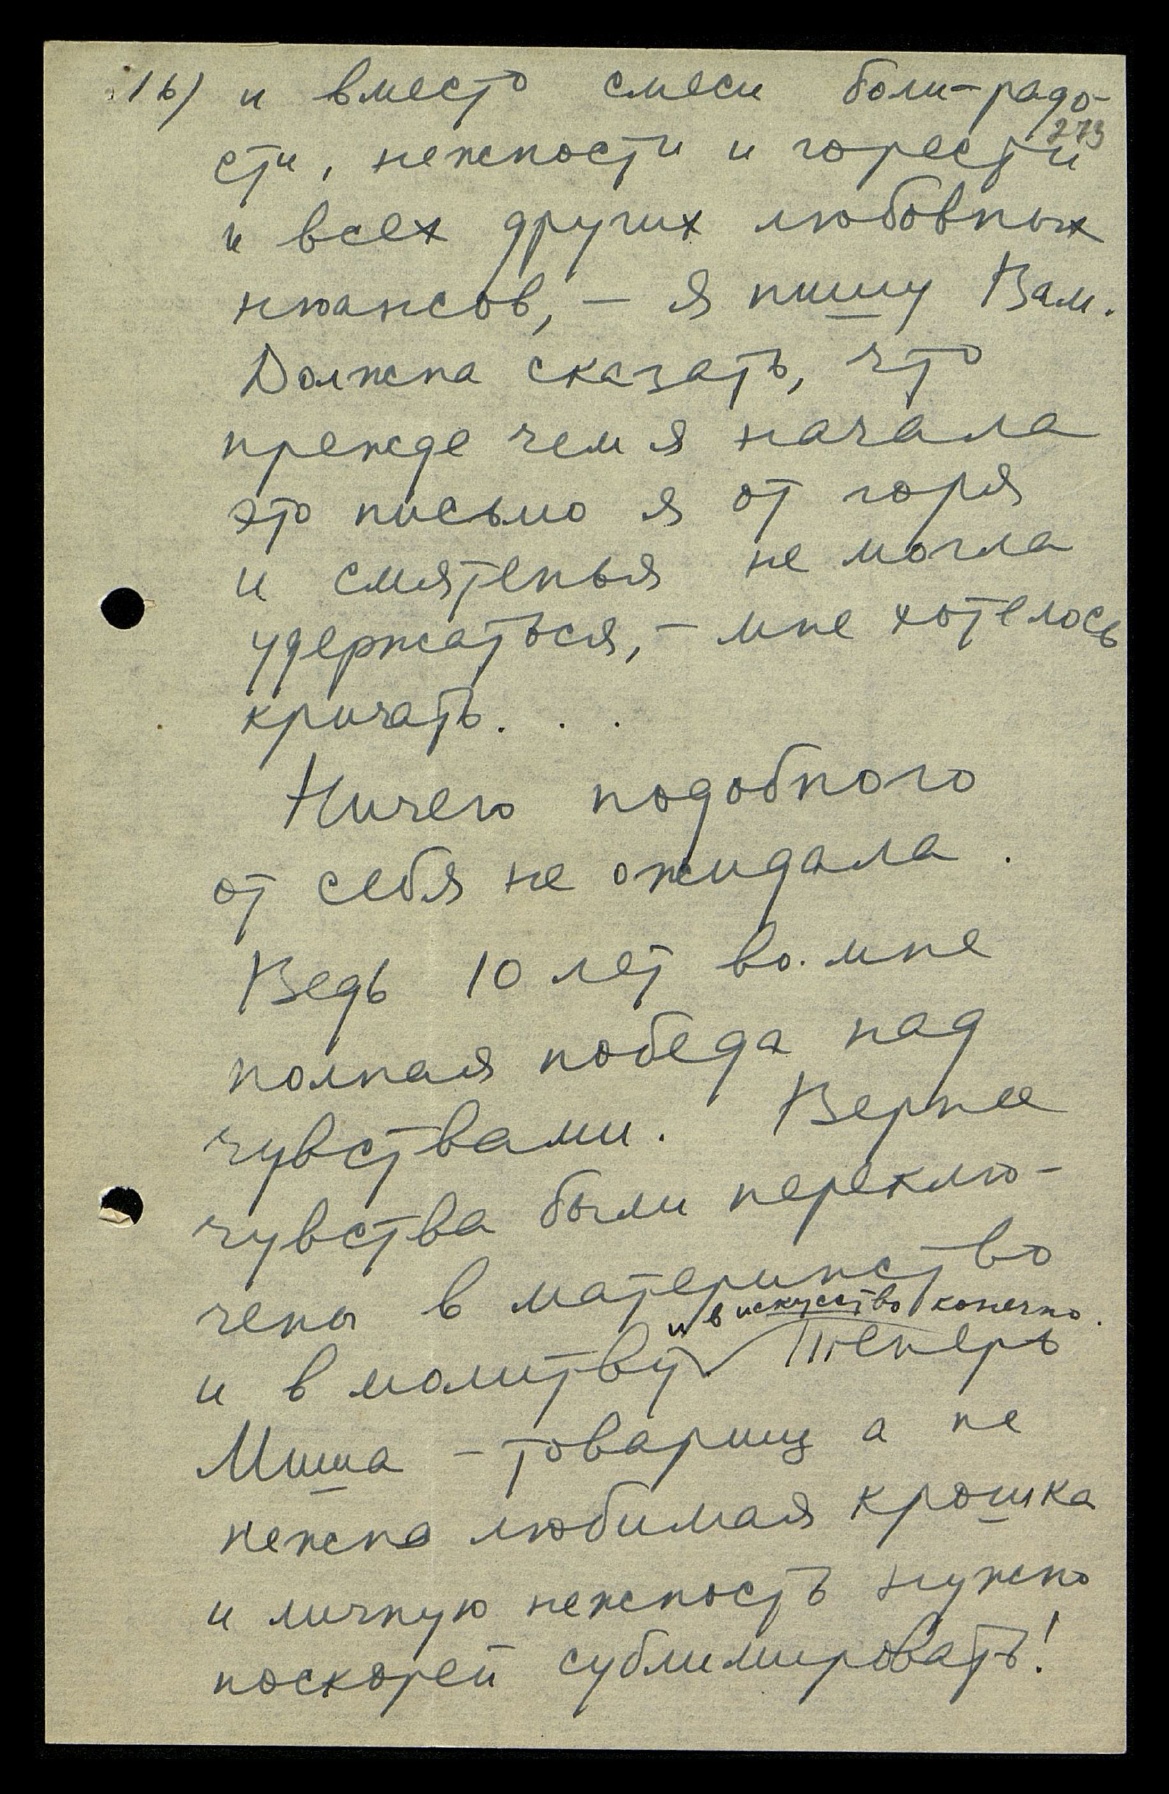 1б) и вместо смеси боли-радо-
273
сти, нежности и горести
и всех других любовных
нюансов, – я пишу Вам.
Должна сказать, что
прежде чем я начала
это письмо я от горя
и смятенья не могла
удержаться, – мне хотелось
кричать. . .
Ничего подобного
от себя не ожидала.
Ведь 10 лет во мне
полная победа над
чувствами. Вернее
чувства были переклю-
чены в материнство
и в искусство конечно.
и в молитву Теперь
Миша – товарищ а не
нежно любимая крошка
и личную нежность нужно
поскорей сублимировать!